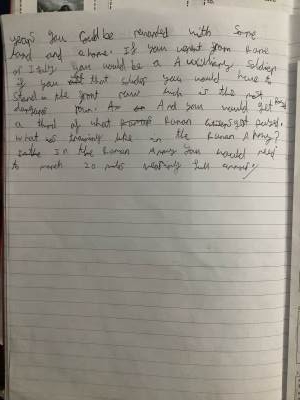 years you could be rewarded with some
land and a home. If you wernt from Rome
or Italy you would be a Auxiliary Soldier
if you that soldier you would have to
stand in the front row which is the most
dangerous And you would get
a third of what Roman get payed.
What was training like in the Roman Army?
In the Roman Army you would need
to march 20 miles wearing full armour,